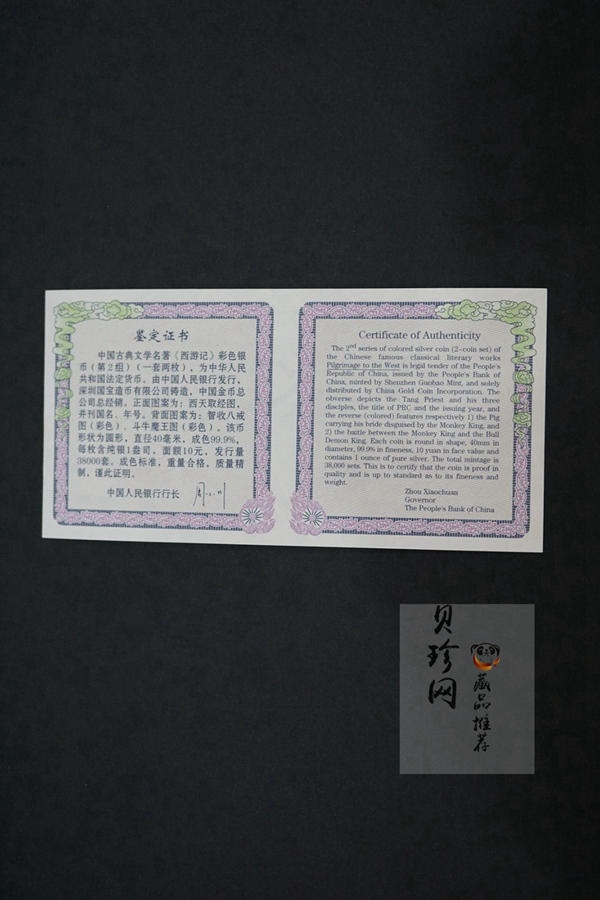 鉴定证书
中国古典文学名著《西游记》彩色银
币（第2组）（一套两枚），为中华人民
共和国法定货币。由中国人民银行发行，
深圳国宝造币有限公司铸造，中国金币总
公司总经销。正面图案为：西天取经图，
并刊国名、年号。背面图案为：智收八戒
图（彩色）、斗牛魔王图（彩色）。该币
形状为圆形，直径40毫米，成色99.9%，
每枚含纯银1盎司。面额10元，发行量
38000套。成色标准，重量合格，质量精
制，谨此证明。
中国人民银行行长
Certificate of Authenticity
The 2nd series of colored silver coin (2-coin set) of
the Chinese famous classical literary works
Pilgrimage to the West is legal tender of the People's
Republic of China, issued by the People's Bank of
China, minted by Shenzhen Guobao Mint, and solely
distributed by China Gold Coin Incorporation. The
obverse depicts the Tang Priest and his three
disciples, the title of PRC and the issuing year, and
the reverse (colored) features respectively 1) the Pig
carrying his bride disguised by the Monkey King, and
2) the battle between the Monkey King and the Bull
Demon King. Each coin is round in shape, 40mm in
diameter, 99.9% in fineness, 10 yuan in face value and
contains 1 ounce of pure silver. The total mintage is
38,000 sets. This is to certify that the coin is proof in
quality and is up to standard as to its fineness and
weight.
Zhou Xiaochuan
Governor
The People's Bank of China
贝珍网
藏品推荐